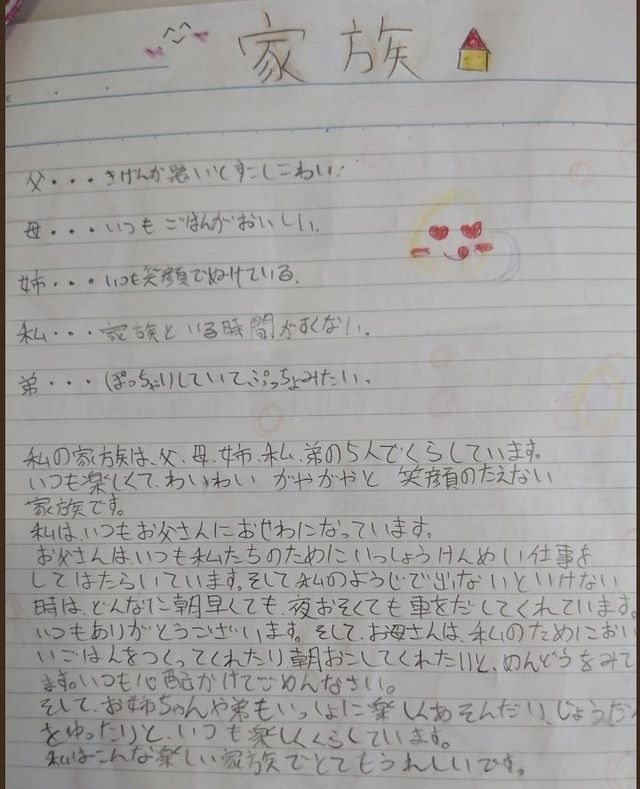 家族
父・・・きげんが悪いとすこしこわい。
母・・・いつもごはんがおいしい。
姉・・・いつも笑顔でぬけている。
私・・・家族といる時間がすくない。
弟・・・ぽっちゃりしていてぷっちょみたい。
私の家族は、父、母、姉、私、弟の5人でくらしています。
いつも楽しくて、わいわい がやがやと 笑顔のたえない
家族です。
私は、いつもお父さんにおせわになっています。
お父さんは、いつも私たちのためにいっしょうけんめい仕事を
してはたらいています。そして私のようじで出ないといけない
時は、どんなに朝早くても、夜おそくても車をだしてくれています。
いつもありがとうございます。そして、お母さんは、私のためにおい
いごはんをつくってくれたり朝おこしてくれたりと、めんどうをみて
ます。いつも心配かけてごめんなさい。
そして、お姉ちゃんや弟もいっしょに楽しくあそんだり、じょうだん
をゆったりと、いつも楽しくくらしています。
私はこんな楽しい家族でとてもうれしいです。